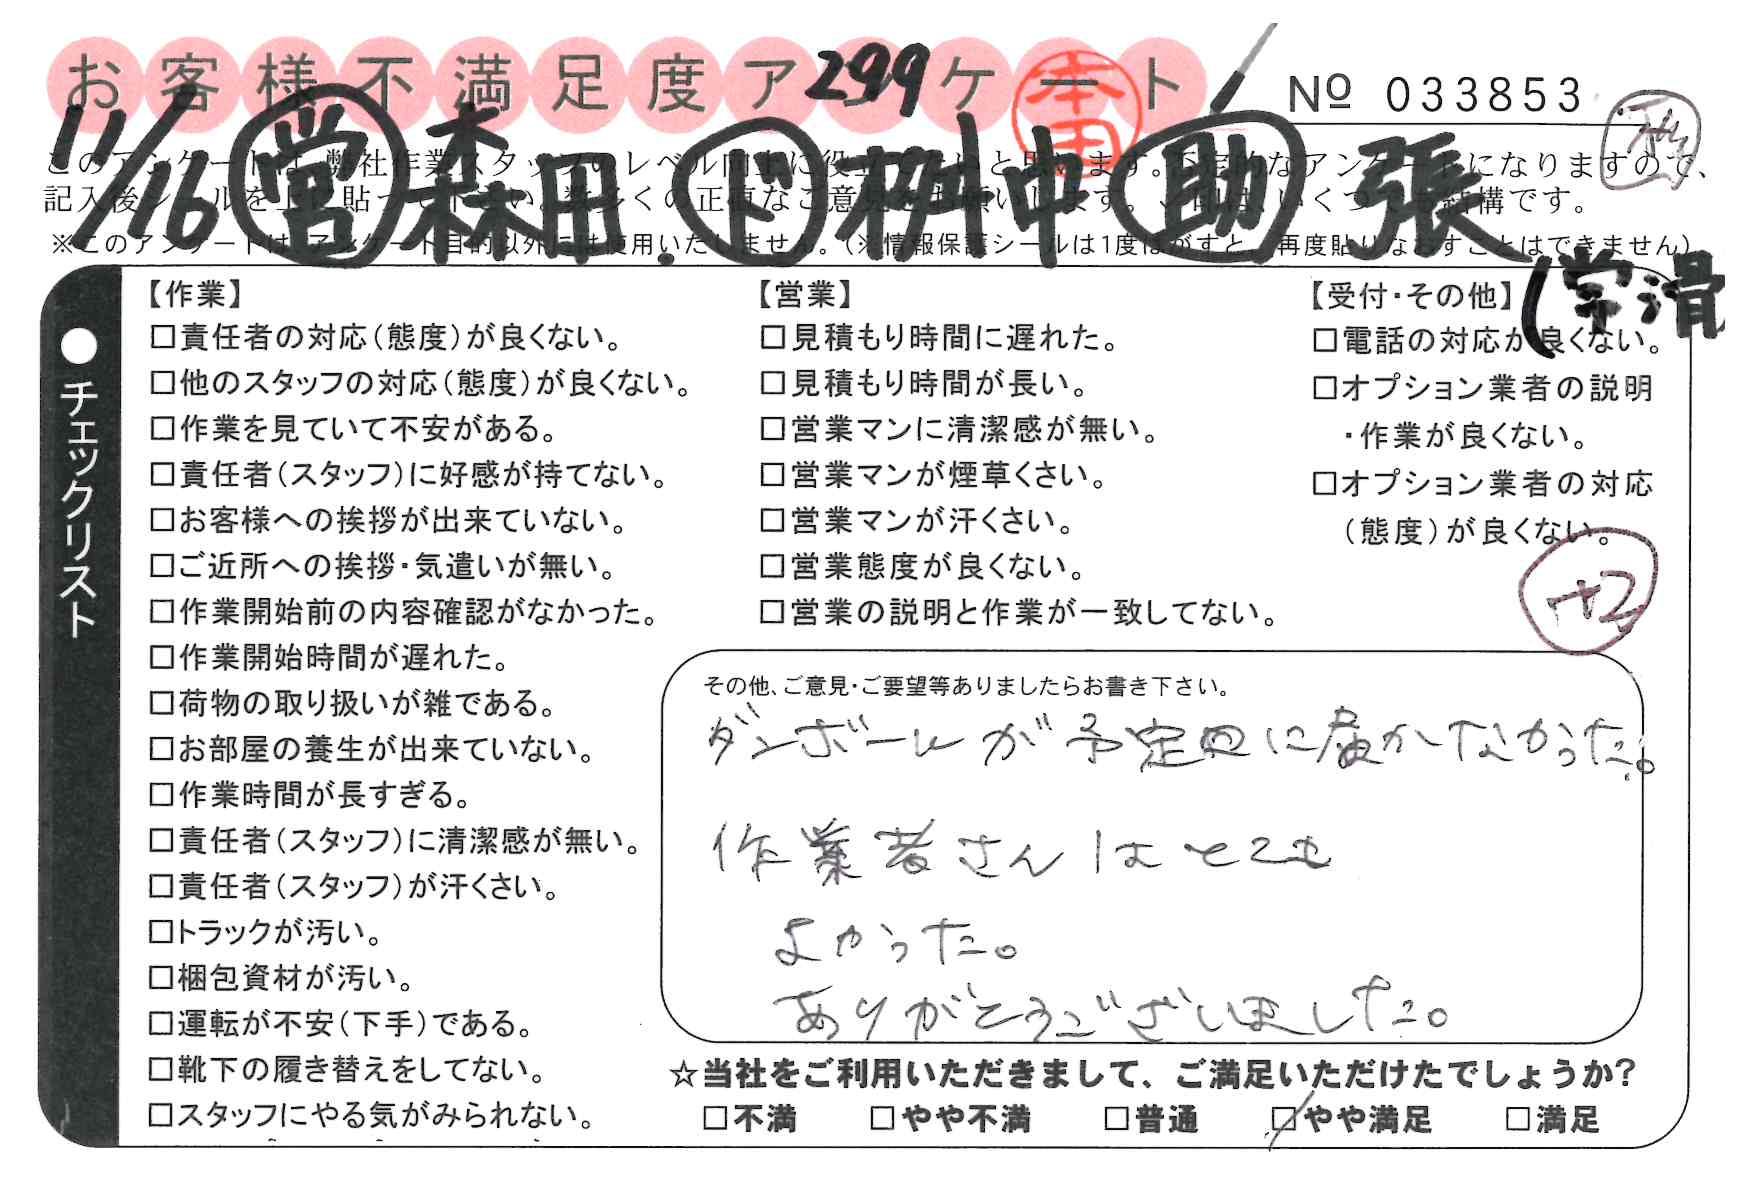 お客様不満足度アンケート 299
本田
№ 033853
11/16 営 森田. ド 畑中 助 張
このアンケートは、弊社作業スタッフのレベル向上に役立てたいと思います。否定的なアンケートになりますので、
記入後シールを上に貼って下さい。数多くの正直なご意見をお願いします。✓印は、いくつでも結構です。
※このアンケートは、アンケート目的以外には使用いたしません。(※情報保護シールは1度はがすと、再度貼りなおすことはできません)
(常滑
●チェックリスト
【作業】
□責任者の対応(態度)が良くない。
□他のスタッフの対応(態度)が良くない。
□作業を見ていて不安がある。
□責任者(スタッフ)に好感が持てない。
□お客様への挨拶が出来ていない。
□ご近所への挨拶・気遣いが無い。
□作業開始前の内容確認がなかった。
□作業開始時間が遅れた。
□荷物の取り扱いが雑である。
□お部屋の養生が出来ていない。
□作業時間が長すぎる。
□責任者(スタッフ)に清潔感が無い。
□責任者(スタッフ)が汗くさい。
□トラックが汚い。
□梱包資材が汚い。
□運転が不安(下手)である。
□靴下の履き替えをしてない。
□スタッフにやる気がみられない。
【営業】
□見積もり時間に遅れた。
□見積もり時間が長い。
□営業マンに清潔感が無い。
□営業マンが煙草くさい。
□営業マンが汗くさい。
□営業態度が良くない。
□営業の説明と作業が一致してない。
【受付・その他】
□電話の対応が良くない。
□オプション業者の説明
・作業が良くない。
□オプション業者の対応
(態度)が良くない。
+2
その他、ご意見・ご要望等ありましたらお書き下さい。
ダンボールが予定日に届かなかった。
作業者さんはとても
よかった。
ありがとうございました。
☆当社をご利用いただきまして、ご満足いただけたでしょうか?
□不満 □やや不満 □普通 □やや満足 □満足